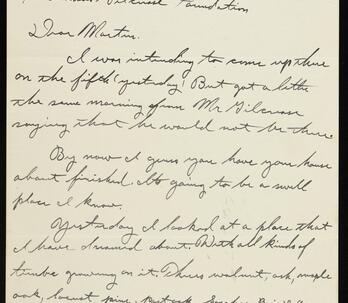 Foundation
Dear Martin.
I was intending to come up there
on the fifth (yesterday) But got a letter
the same morning from Mr Gilcrease
saying that he would not be there.
By now I guess you have your house
about finished. Its going to be a swell
place I know.
Yesterday I looked at a place that
I have dreamed about. With all kinds of
timber growing on it. Theres walnut, ash, maple
oak, locust, pine,